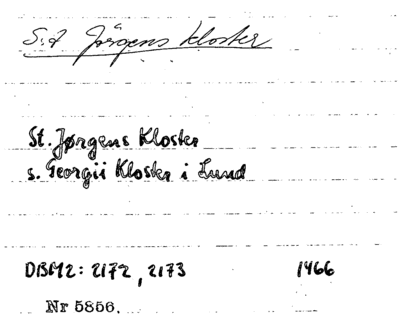 S:t Jörgens Kloster
St. Jørgens Kloster
s. Georgii Kloster i Lund
DBM2: 2172, 2173 1466
Nr 5856.